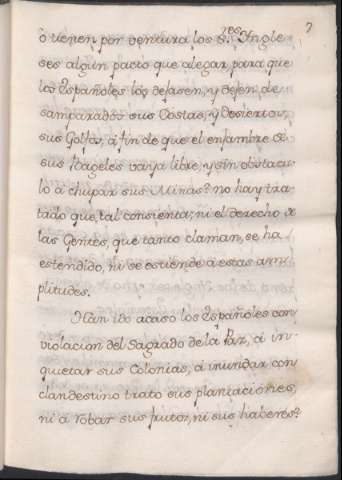 7
ò tienen por ventura los S.res Ingle
ses algun pacto que alegar para que
los Españoles los dejasen, y dejen de
samparados sus Costas, y
sus Golfos, á fin de que el enjambre de
sus Bageles vaya libre, y sin obstacu
lo á chupar sus Minas? no hay tra
tado que tal consienta; ni el derecho de
las Gentes, que tanto claman, se ha
estendido, ni se estiende á estas am
plitudes.
Han ido acaso los Españoles con
violacion del Sagrado de la Paz, á in-
quietar sus Colonias, á inundar con
clandestino trato sus plantaciones,
ni á robar sus frutos, ni sus haberes?